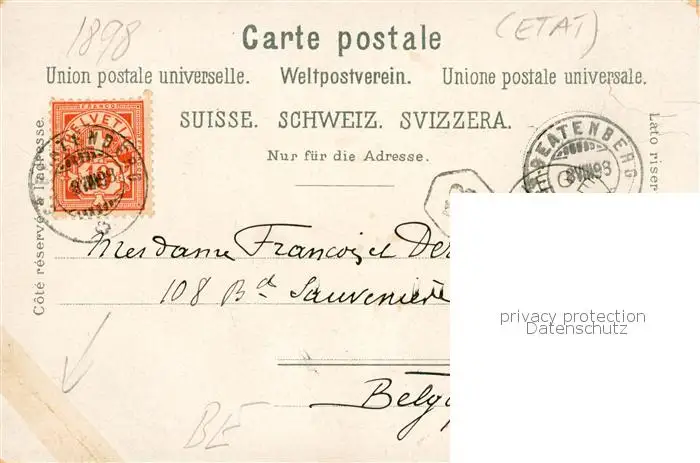 1898
(ETAT)
Carte postale
Union postale universelle. Weltpostverein. Unione postale universale.
SUISSE. SCHWEIZ. SVIZZERA.
Nur für die Adresse.
Côté réservé à l'adresse.
Lato riser
FRANCO
HELVETIA
10
BEATENBERG
VIII 98
Mesdame François et De
108 Bd Sauvenière
Belg
BE
privacy protection
Datenschutz